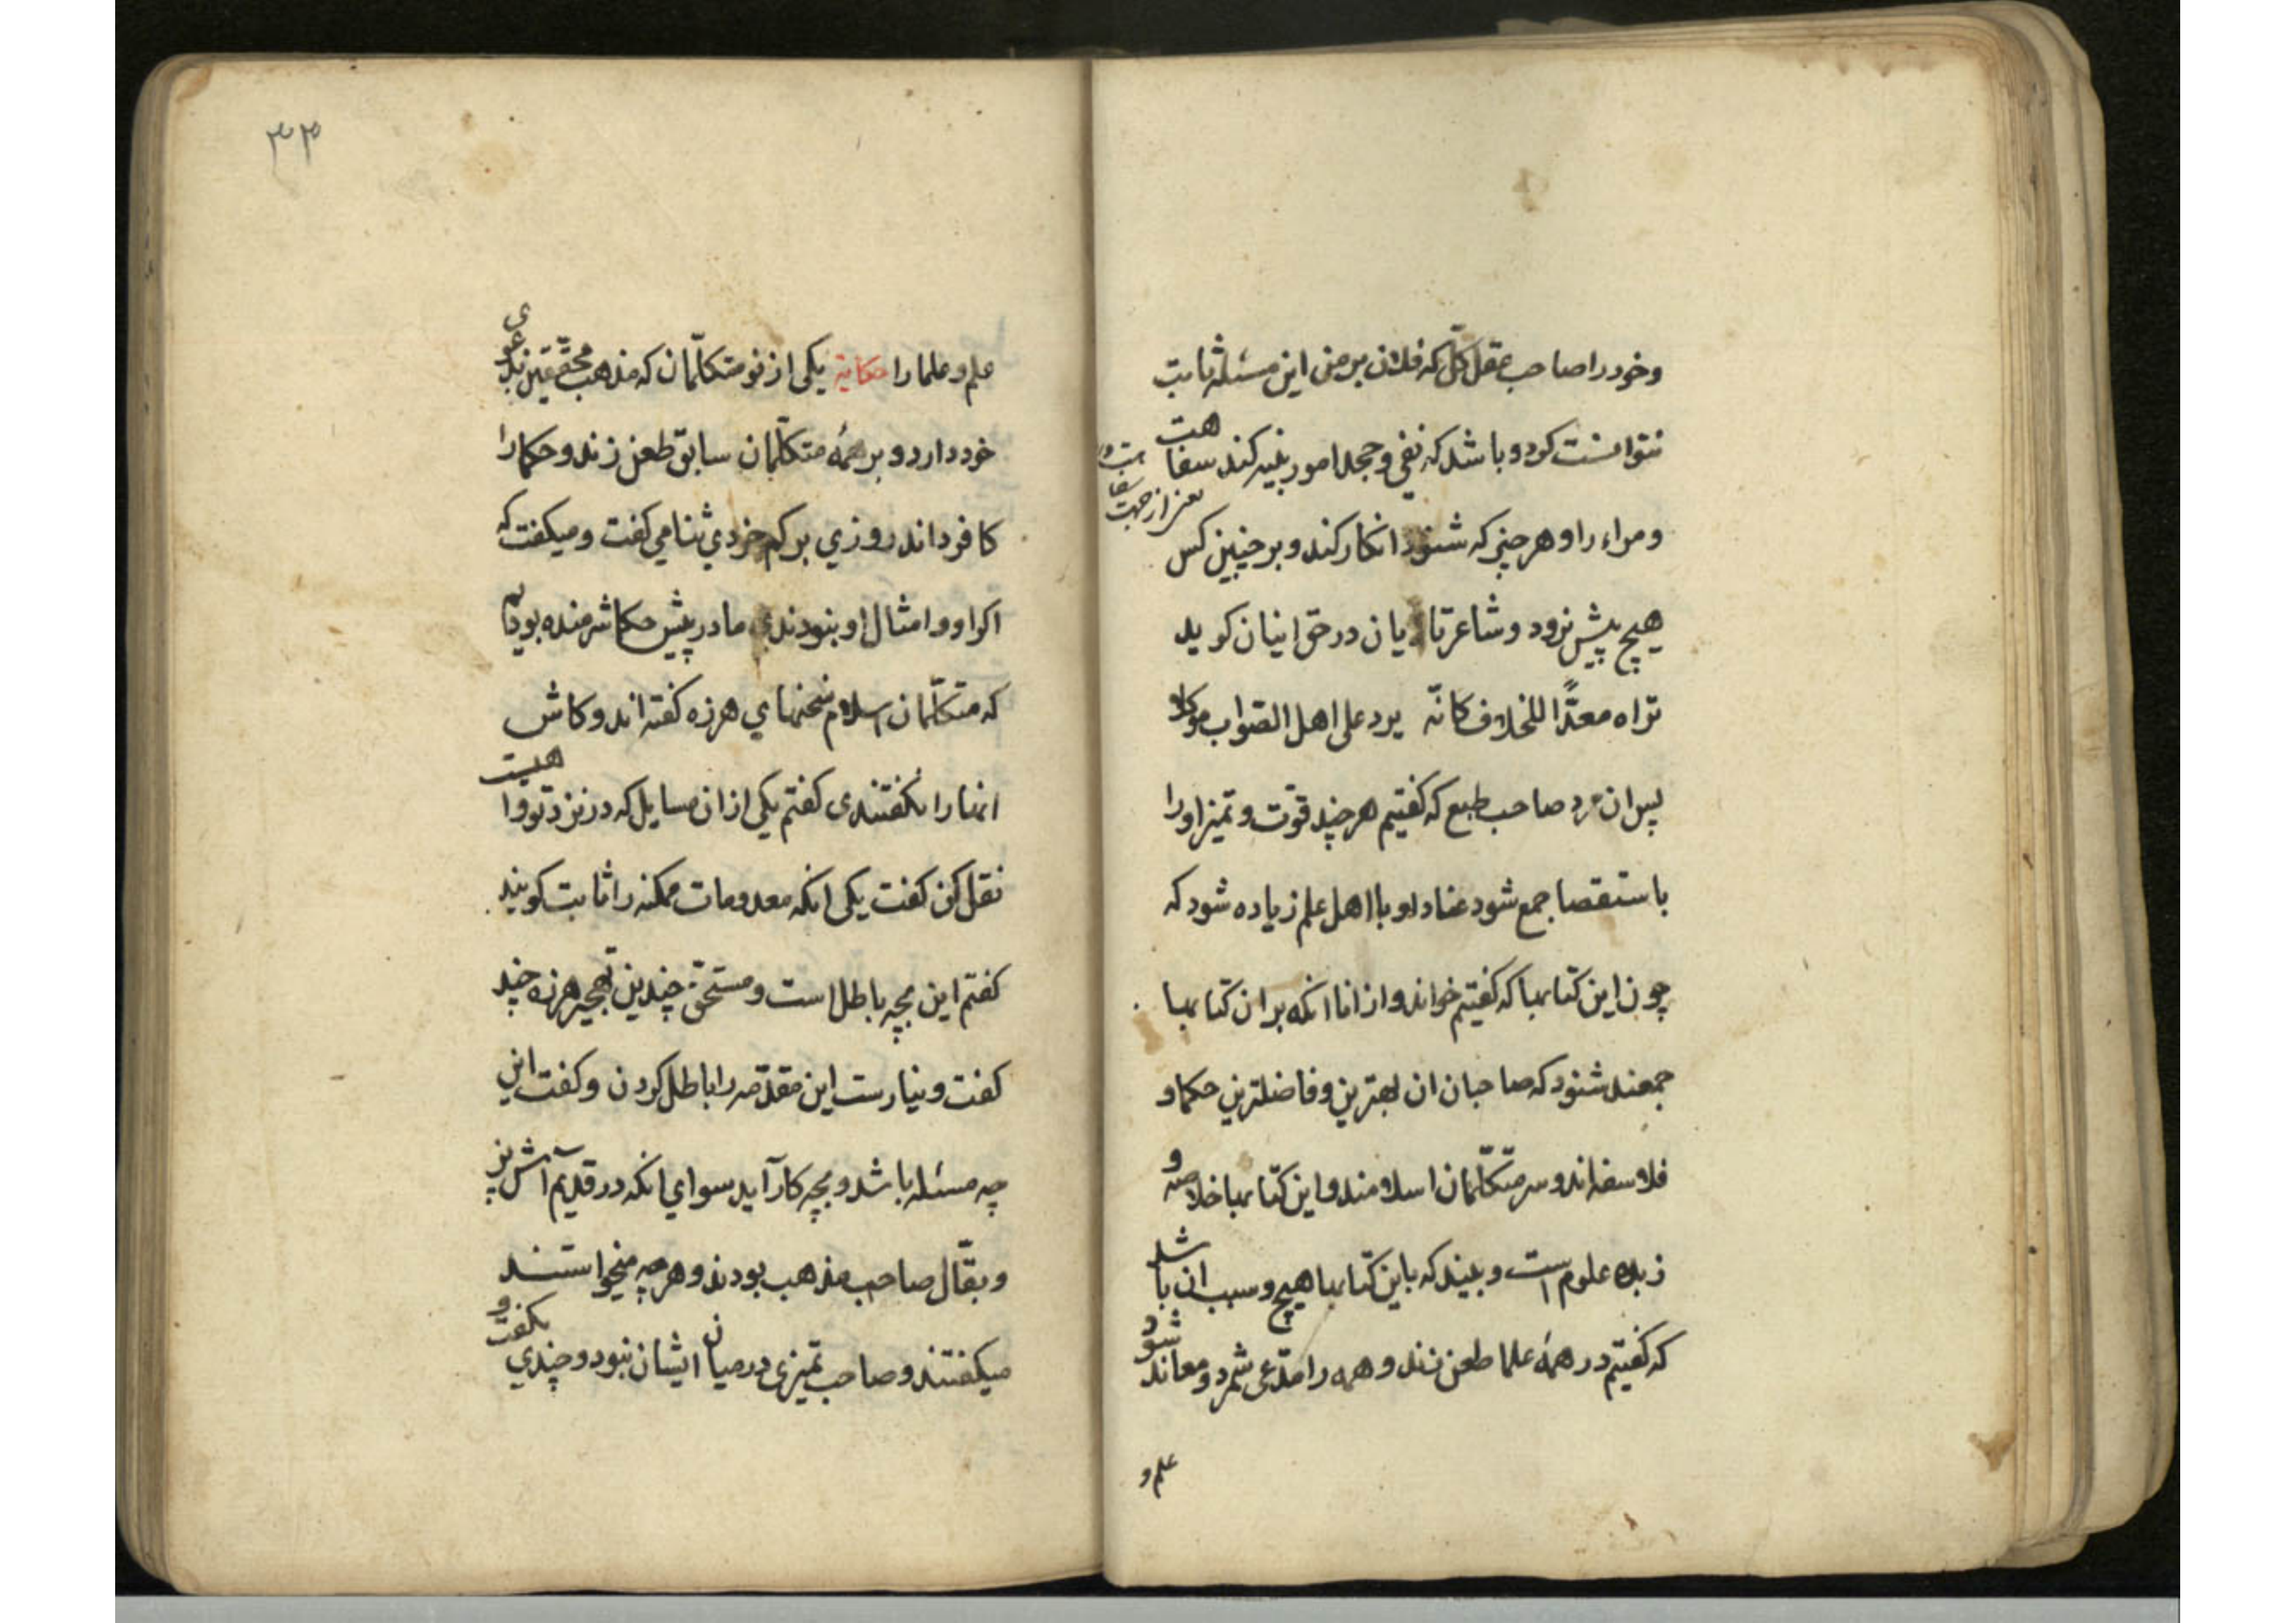 وخود را صاحب عقل کل که فلان بر من این مسئله ثابت
نتوانست کرد و باشد که نفی و جحد امور بینه کند سفاهت
ومراء را و هر چیز که شنود انکار کند و بر چنین کس
هیچ پیش نرود و شاعر تازیان در حق اینان کوید
تراه معدّاً للخلاف کانّه یرد علی اهل الصّواب موکلا
پس ان مرد صاحب طبع که کفتیم هر چند قوّت و تمیز او را
باستقصا جمع شود عناد او با اهل علم زیاده شود که
چون این کتابها که کفتیم خواند و از انا انکه بر ان کتابها
جمعند شنود که صاحبان ان بهترین و فاضلترین حکما و
فلاسفه‌اند و سر متکلّمان اسلامند و این کتابها خلاصه و
زبده علوم است و بیند که باین کتابها هیچ و سبب ان باشد
که کفتیم در همهٔ علما طعن زند و همه را مدّعی شمرد و معاند شود
علم و
۳۳
علم و علما را حکایة یکی از نو متکلّمان که مذهب محقّقین بدعوی
خود دارد و بر همهٔ متکلّمان سابق طعن زند و حکما را
کافر داند روزی بر کم خردی ثنا می کفت و میکفت که
اکر او و امثال او نبودندی ما در پیش حکما شرمنده بودیم
که متکلّمان اسلام سخنهای هرزه کفته اند و کاش
انها را نکفتندی کفتم یکی از ان مسایل که در نزد تو واهیست
نقل کن کفت یکی انکه معدومات ممکنه را ثابت کویند
کفتم این بچه باطل است و مستحق چندین تهجیر هرزه چند
کفت و نیارست این مقدّمه را باطل کردن و کفت این
چه مسئله باشد و بچه کار آید سوای انکه در قدیم آش پز
و بقّال صاحب مذهب بودند و هر چه میخواستند
میکفتند و صاحب تمیزی در میان ایشان نبود و چندی بکفت و